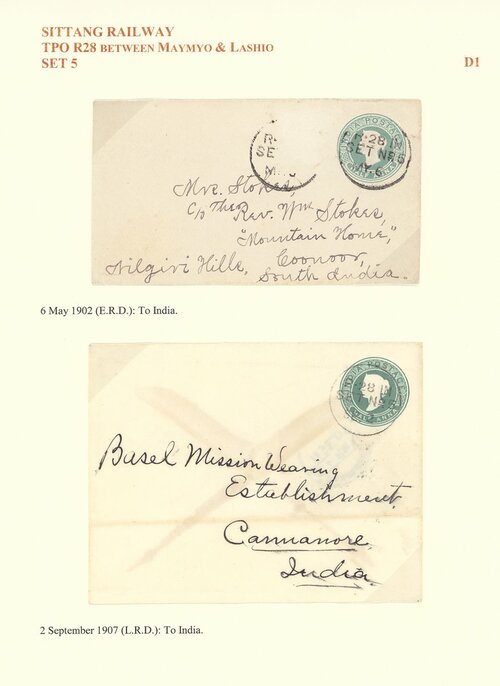 SITTANG RAILWAY
TPO R28 BETWEEN MAYMYO & LASHIO
SET 5
D1
R-28 IN
SET No 5
MY. 6
INDIA POSTAGE
Mrs. Stokes,
C/o The Rev. Wm Stokes,
"Mountain Home",
Coonoor,
Nilgiri Hills,
South India.
6 May 1902 (E.R.D.): To India.
INDIA POSTAGE
28 IN
Basel Mission Weaving
Establishment,
Cannanore,
India.
2 September 1907 (L.R.D.): To India.